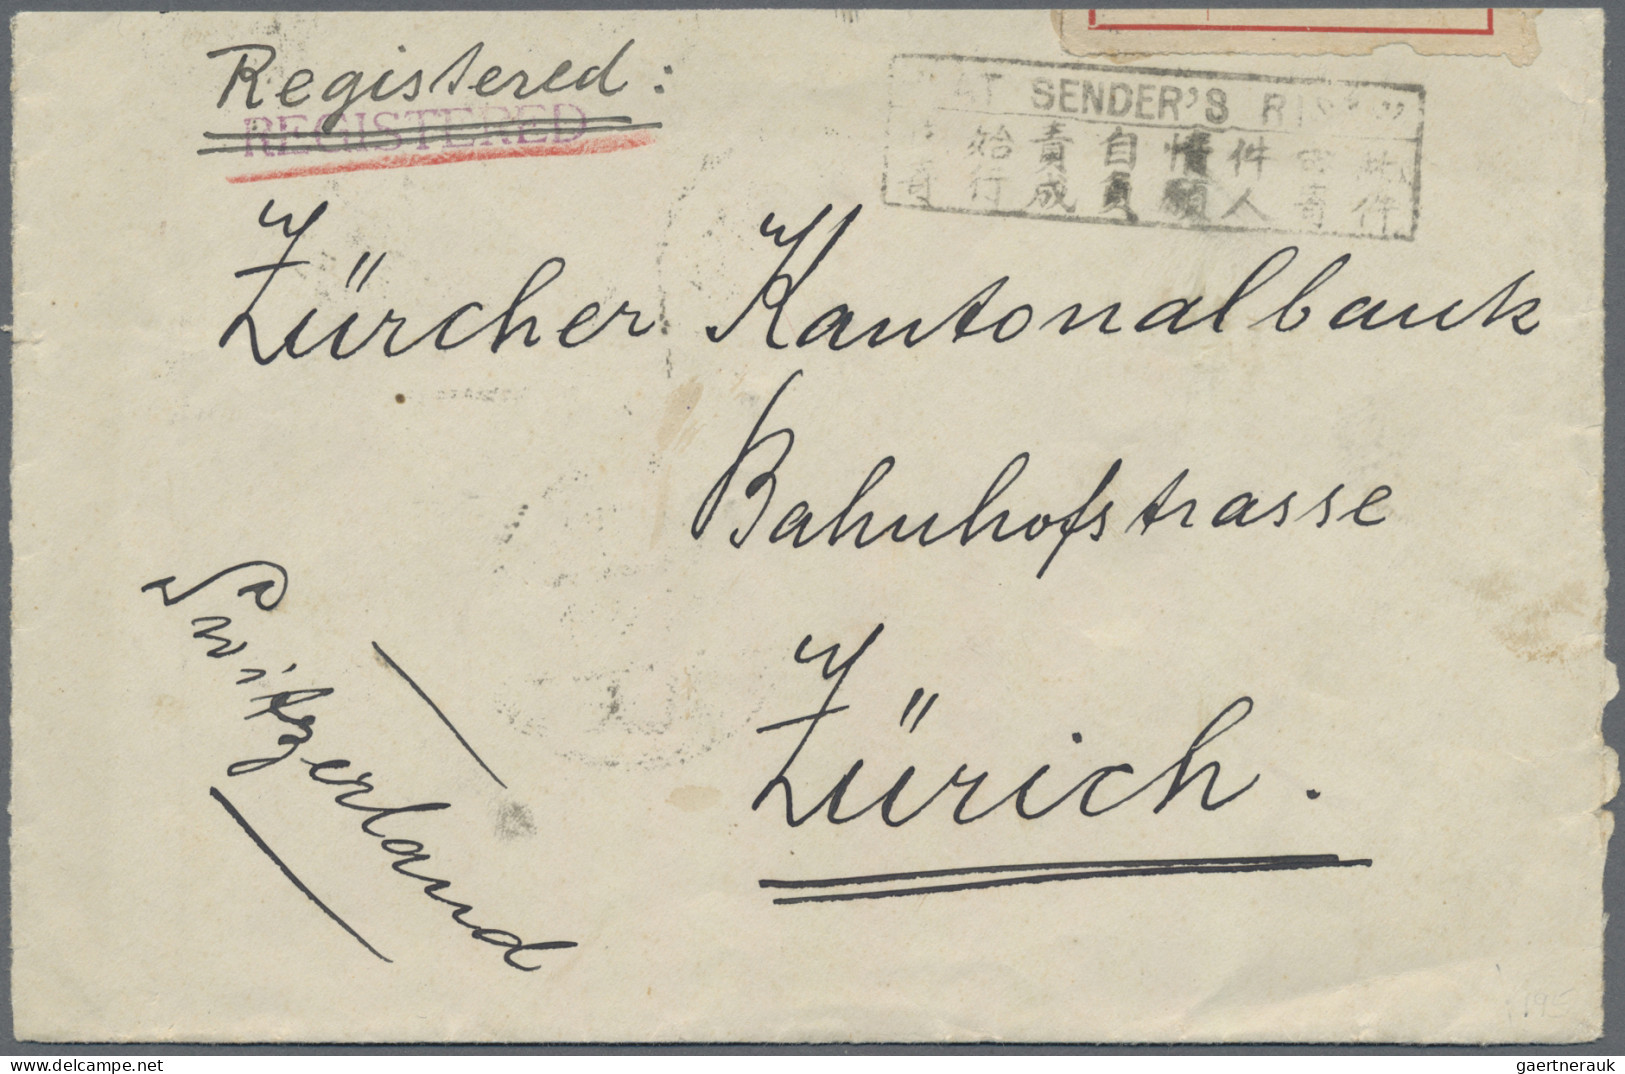 Registered:
REGISTERED
"AT SENDER'S RISK"
始責自情件
行成負願人寄件
Zürcher Kantonalbank
Bahnhofstrasse
Zürich.
Switzerland
gaertnerauk